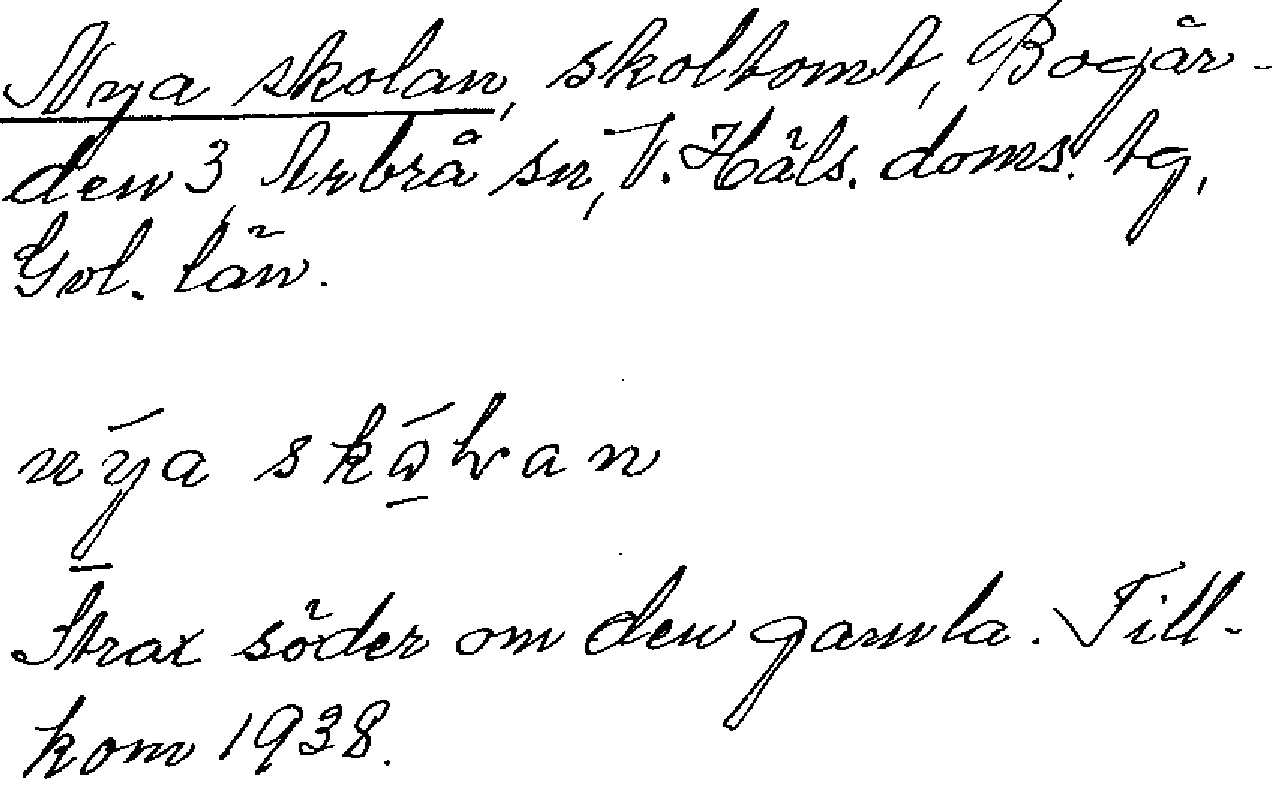 Nya skolan, skoltomt, Bogår-
den 3, Arbrå sn, V. Häls. doms. tg,
Gvl. län.
nýa
Strax söder om den gamla. Till-
kom 1938.